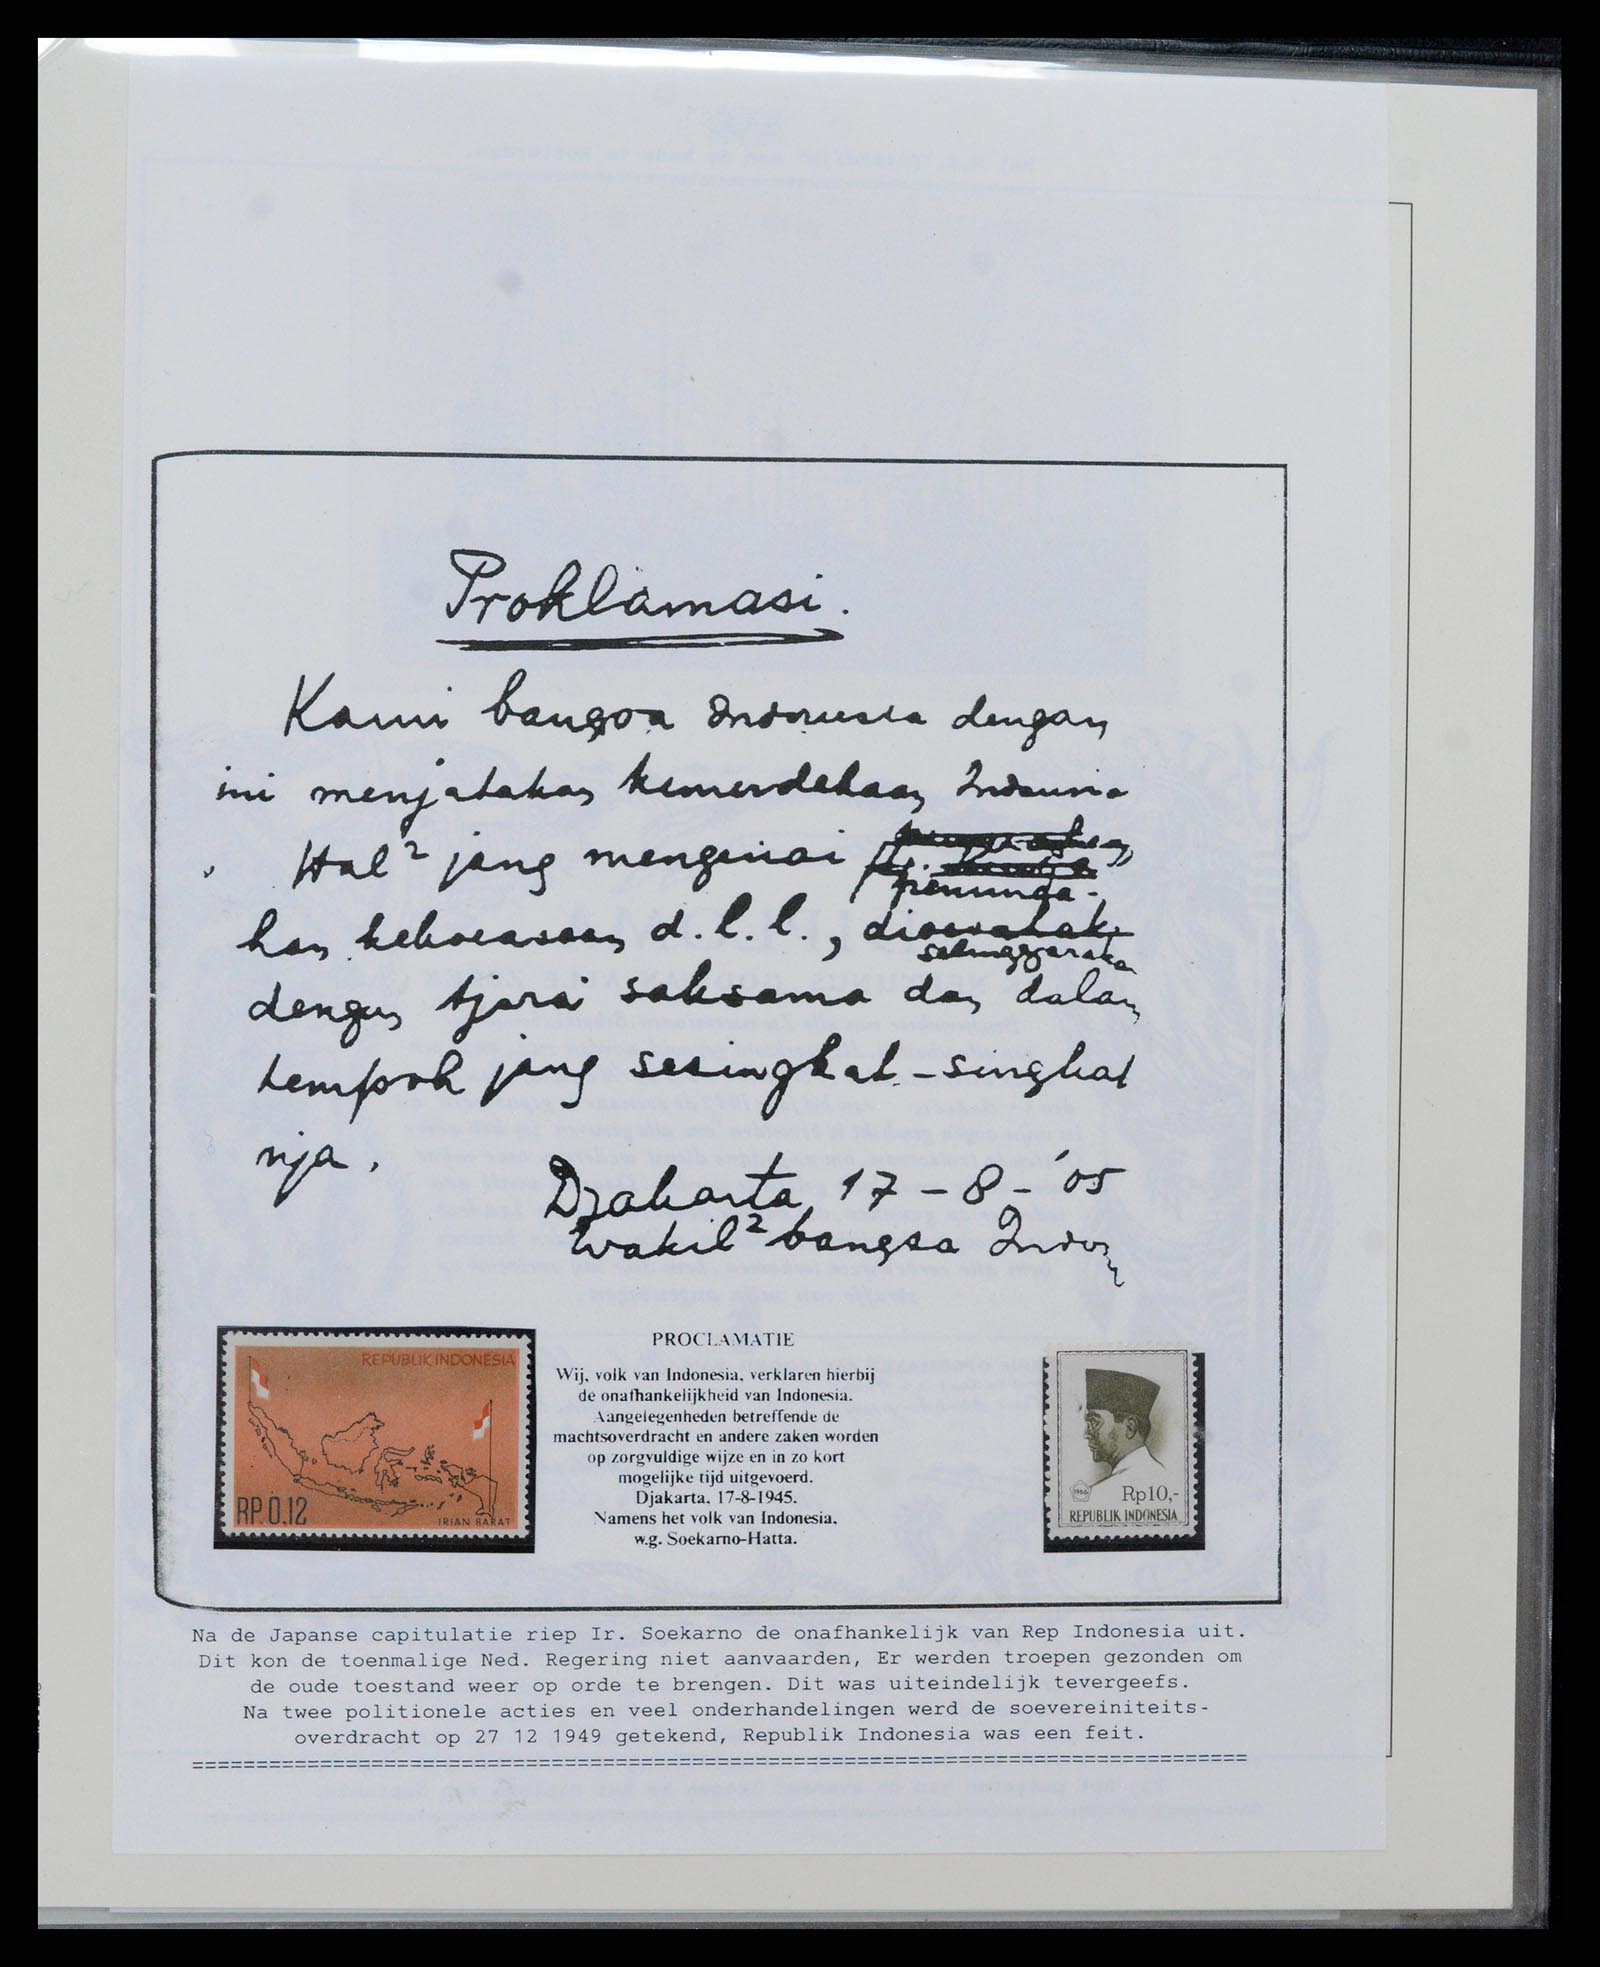 Proklamasi.
Kami bangsa Indonesia dengan
ini menjatakan kemerdekaan Indonesia
Hal² jang mengenai
peminda-
han kekoeasaan d.l.l.,
diselenggarakan
dengan tjara saksama dan dalam
tempoh jang sesingkat-singkat
nja.
Djakarta 17-8-'05
Wakil² bangsa Indon
REPUBLIK INDONESIA
RP.0.12
IRIAN BARAT
PROCLAMATIE
Wij, volk van Indonesia, verklaren hierbij
de onafhankelijkheid van Indonesia.
Aangelegenheden betreffende de
machtsoverdracht en andere zaken worden
op zorgvuldige wijze en in zo kort
mogelijke tijd uitgevoerd.
Djakarta, 17-8-1945.
Namens het volk van Indonesia,
w.g. Soekarno-Hatta.
1966
Rp10,-
REPUBLIK INDONESIA
Na de Japanse capitulatie riep Ir. Soekarno de onafhankelijk van Rep Indonesia uit.
Dit kon de toenmalige Ned. Regering niet aanvaarden, Er werden troepen gezonden om
de oude toestand weer op orde te brengen. Dit was uiteindelijk tevergeefs.
Na twee politionele acties en veel onderhandelingen werd de soevereiniteits-
overdracht op 27 12 1949 getekend, Republik Indonesia was een feit.